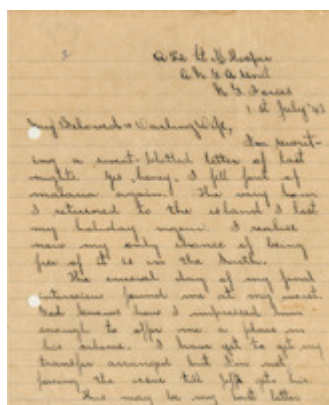 Lt. G Hooper
N. G. Forces
1st July '43
My Beloved & Darling Wife,
I'm rewrit-
ing a sweat-blotted letter of last
night. Yes honey, I fell foul of
malaria again. The very hour
I returned to the island I lost
my holiday vigour. I realise
now my only chance of being
free of it is in the South.
The crucial day of my final
interview found me at my worst.
God knows how I impressed him
enough to offer me a place in
his scheme. I have got to get my
transfer arranged but I'm not
forcing the issue till gets his
This may be my last letter